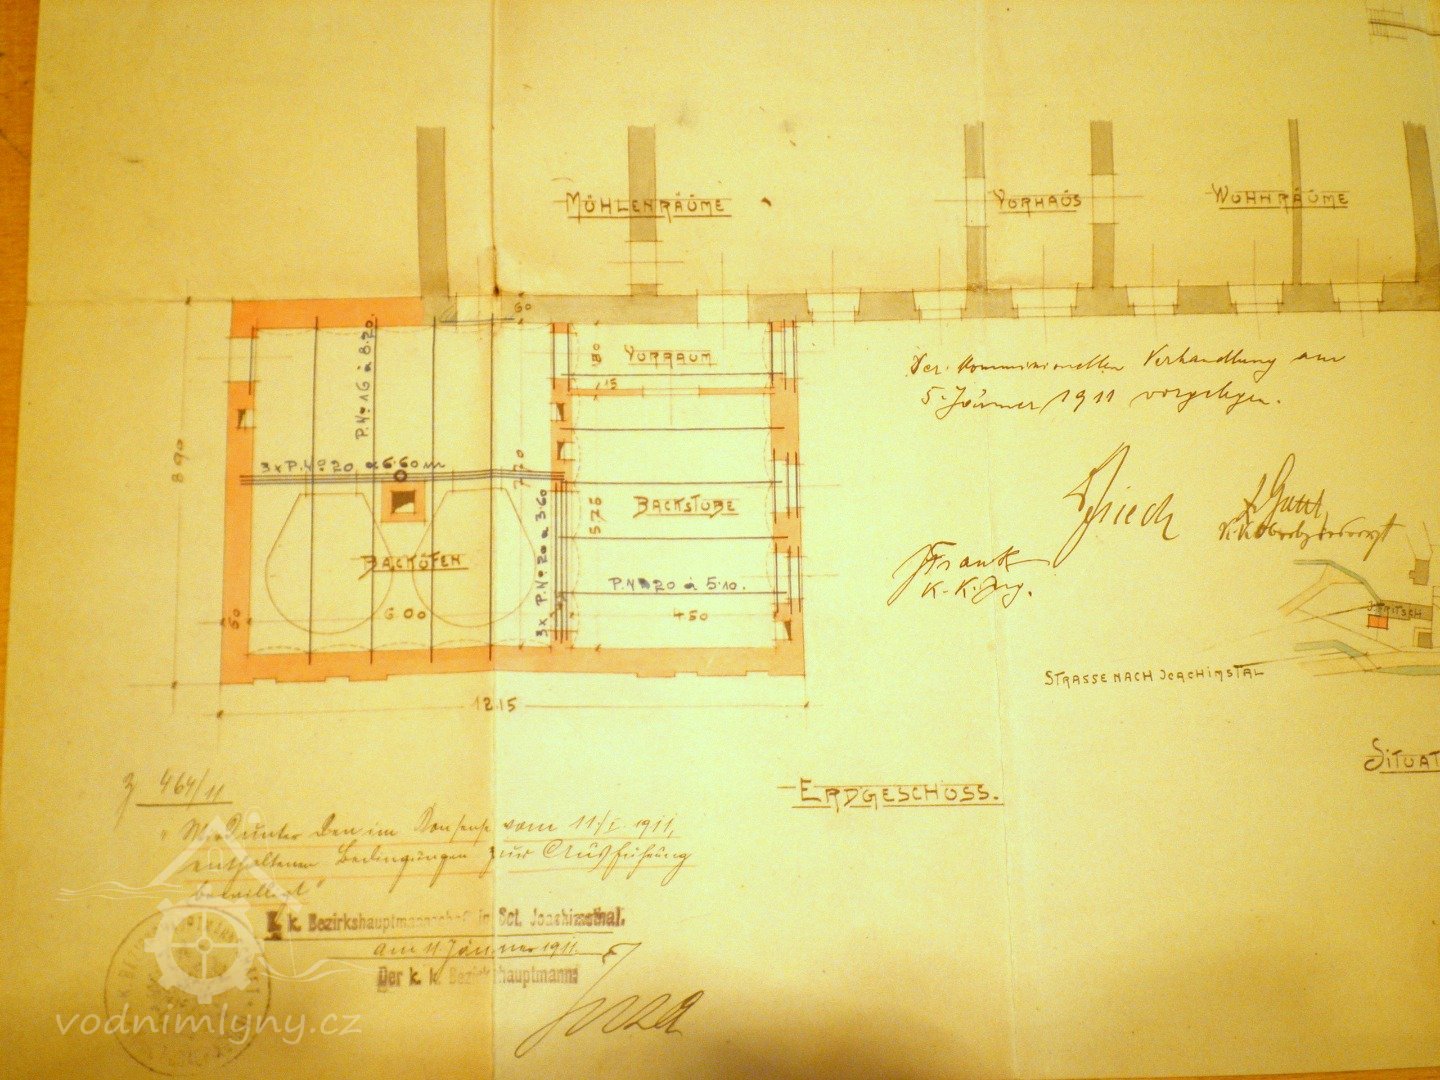 MÜHLENRÄUME
VORHAUS
WOHNRÄUME
60
VORRAUM
15
P. No 16 à 8.20
3 x P. No 20 à 6.60 m
890
770
575
BACKSTUBE
BACKÖFEN
3 x P. No 20 à 3.60
P. No 20 à 5.10.
60
600
450
1215
Verhandlung am
5. Jänner 1911 vorgelegen.
Frank
K. K. Ing.
J. FRITSCH
STRASSE NACH JOACHIMSTAL
SITUAT
ERDGESCHOSS.
Z 464/11
"Wird unter den im Konsense vom 11./I 1911,
enthaltenen Bedingungen zur Ausführung
bewilligt"
K. k. Bezirkshauptmannschaft in Sct. Joachimsthal.
am 11. Jänner 1911.
Der k. k. Bezirkshauptmann:
vodnimlyny.cz